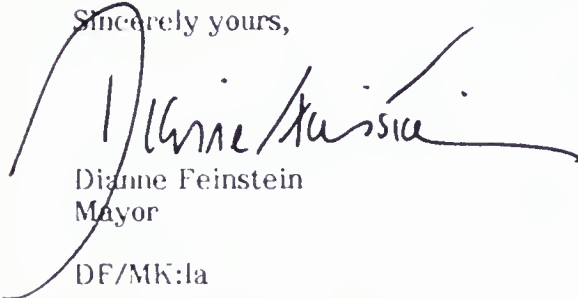 Sincerely yours,
Dianne Feinstein
Dianne Feinstein
Mayor
DF/MK:la